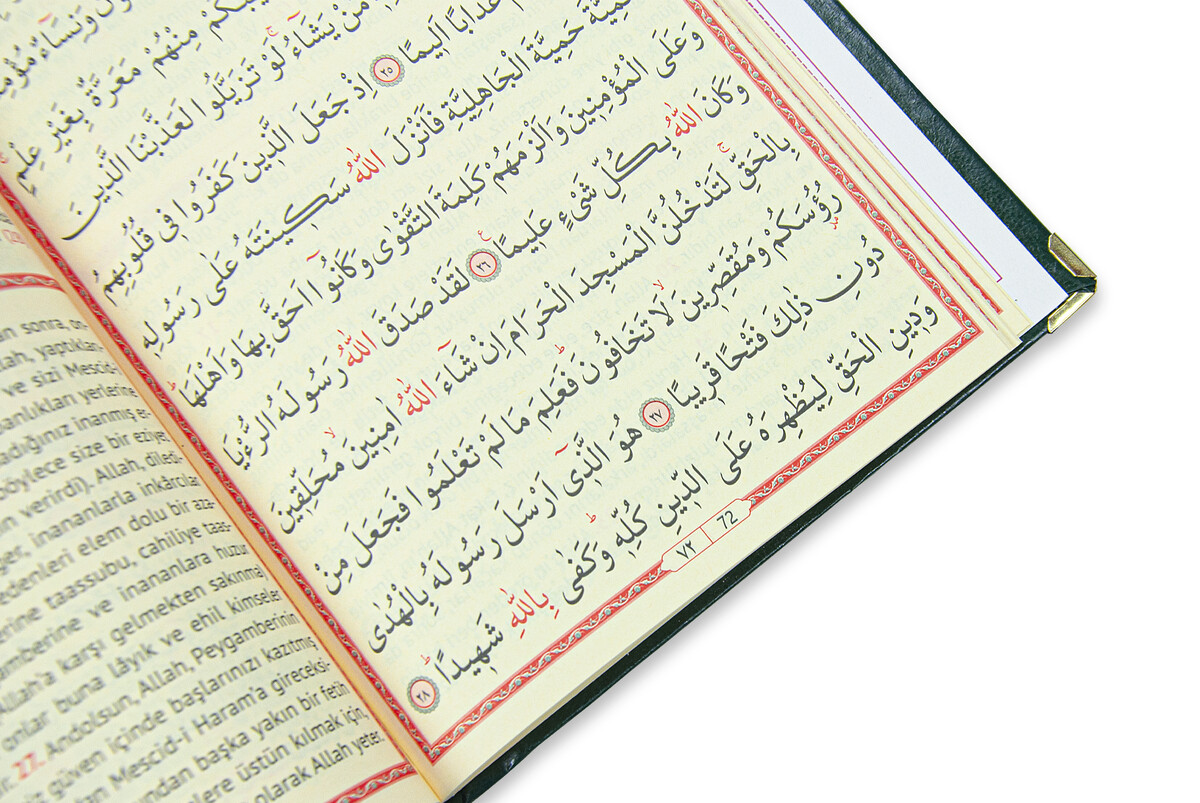 وَنِسَٓاءٌ
مِنْهُمْ مَعَرَّةٌ بِغَيْرِ عِلْمٍ
مَنْ يَشَٓاءُۚ لَوْ تَزَيَّلُوا لَعَذَّبْنَا الَّذ۪ينَ
عَذَابًا اَل۪يمًا ﴿٢٥﴾ اِذْ جَعَلَ الَّذ۪ينَ كَفَرُوا ف۪ي قُلُوبِهِمُ
حَمِيَّةَ الْجَاهِلِيَّةِ فَاَنْزَلَ اللّٰهُ سَك۪ينَتَهُ عَلٰى رَسُولِه۪
وَعَلَى الْمُؤْمِن۪ينَ وَاَلْزَمَهُمْ كَلِمَةَ التَّقْوٰى وَكَانُٓوا اَحَقَّ بِهَا وَاَهْلَهَاۜ
وَكَانَ اللّٰهُ بِكُلِّ شَيْءٍ عَل۪يمًا ﴿٢٦﴾ لَقَدْ صَدَقَ اللّٰهُ رَسُولَهُ الرُّءْيَا
بِالْحَقِّۚ لَتَدْخُلُنَّ الْمَسْجِدَ الْحَرَامَ اِنْ شَٓاءَ اللّٰهُ اٰمِن۪ينَۙ مُحَلِّق۪ينَ
رُؤُ۫سَكُمْ وَمُقَصِّر۪ينَۙ لَا تَخَافُونَۜ فَعَلِمَ مَا لَمْ تَعْلَمُوا فَجَعَلَ مِنْ
دُونِ ذٰلِكَ فَتْحًا قَر۪يبًا ﴿٢٧﴾ هُوَ الَّذ۪ٓي اَرْسَلَ رَسُولَهُ بِالْهُدٰى
وَد۪ينِ الْحَقِّ لِيُظْهِرَهُ عَلَى الدّ۪ينِ كُلِّه۪ۜ وَكَفٰى بِاللّٰهِ شَه۪يدًاۜ ﴿٢٨﴾
٧٢ 72
sonra, on
yaptıkları
ve sizi Mescid-i
yerlerine
inanmış er-
böylece size bir eziyet
verirdi). Allah, diledi-
inananlarla inkârcılar
edenleri elem dolu bir aza-
taassubu, cahiliye taas-
ve inananlara huzur
Allah'a karşı gelmekten sakınma
onlar buna lâyık ve ehil kimseler
27. Andolsun, Allah, Peygamberinin
güven içinde başlarınızı kazıtmış
Mescid-i Haram'a gireceksi-
başka yakın bir fetih
üstün kılmak için,
olarak Allah yeter.